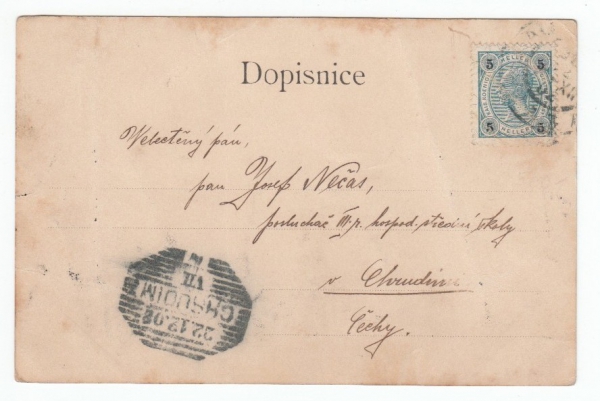 Dopisnice
5 5
HELLER
5 5
HELLER
Velectěný pán,
pan Josef Nečas,
posluchač III. r. hospod. střední školy
v Chrudimi.
Čechy.
CHRUDIM
22.12.02
VII